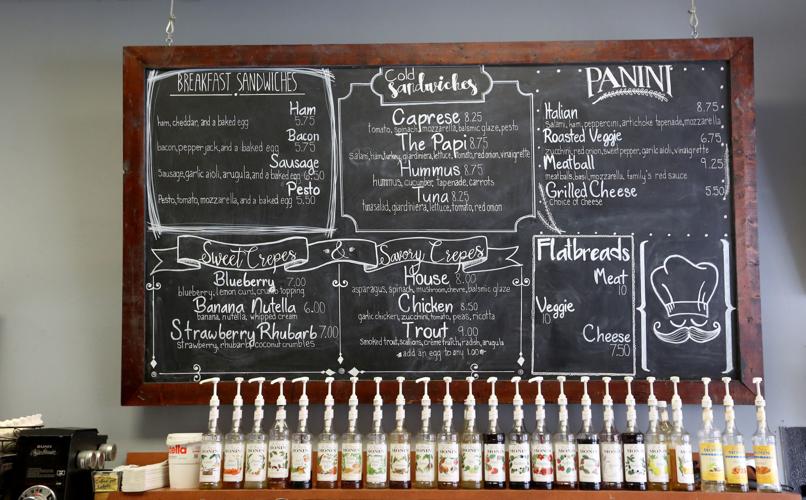 BREAKFAST SANDWICHES
Ham
ham, cheddar, and a baked egg 5.75
Bacon
bacon, pepper jack, and a baked egg 5.75
Sausage
Sausage, garlic aioli, arugula, and a baked egg 6.50
Pesto
Pesto, tomato, mozzarella, and a baked egg 5.50
Cold
Sandwiches
Caprese 8.25
tomato, spinach, mozzarella, balsmic glaze, pesto
The Papi 8.75
Salami, ham, turkey, giardiniera, lettuce, tomato, red onion, vinaigrette
Hummus 8.75
hummus, cucumber, tapenade, carrots
Tuna 8.25
tuna salad, giardiniera, lettuce, tomato, red onion
PANINI
Italian 8.75
Salami, ham, peppercini, artichoke tapenade, mozzarella
Roasted Veggie 6.75
zucchini, red onion, sweet pepper, garlic aioli, vinaigrette
Meatball 9.25
meatballs, basil, mozzarella, family's red sauce
Grilled Cheese 5.50
Choice of Cheese
Sweet Crepes & Savory Crepes
Blueberry 7.00
blueberry, lemon curd, crumb topping
Banana Nutella 6.00
banana, nutella, whipped cream
Strawberry Rhubarb 7.00
Strawberry, rhubarb, coconut crumbles
House 8.00
asparagus, spinach, mushroom, chevre, balsmic glaze
Chicken 8.50
garlic chicken, zucchini, tomato, peas, ricotta
Trout 9.00
Smoked trout, scallions, crème fraîche, radish, arugula
add an egg to any 1.00
Flatbreads
Meat
10
Veggie
10
Cheese
7.50
nutella
BUNN
MONIN